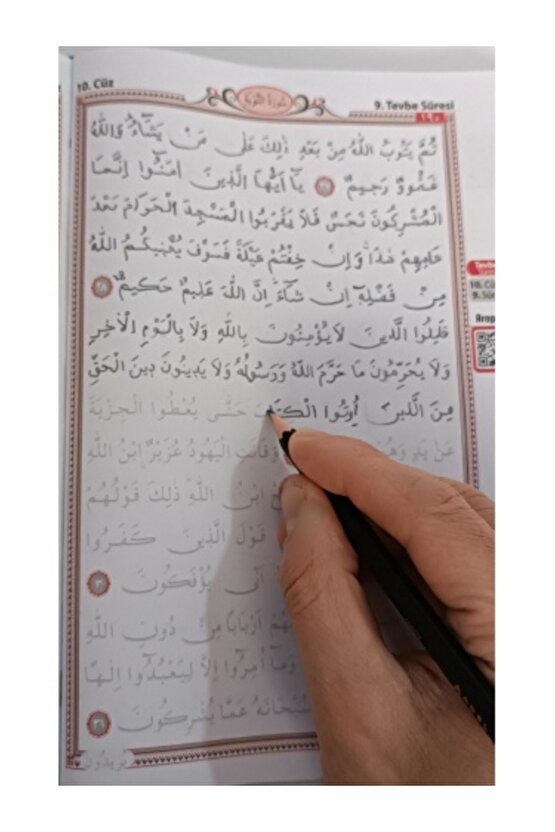 10. Cüz
سورة التوبة
9. Tevbe Sûresi
١٩٠
ثُمَّ يَتُوبُ اللّٰهُ مِنْ بَعْدِ ذٰلِكَ عَلٰى مَنْ يَشَٓاءُۜ وَاللّٰهُ
غَفُورٌ رَحٖيمٌ ٢٧ يَٓا اَيُّهَا الَّذٖينَ اٰمَنُٓوا اِنَّمَا
الْمُشْرِكُونَ نَجَسٌ فَلَا يَقْرَبُوا الْمَسْجِدَ الْحَرَامَ بَعْدَ
عَامِهِمْ هٰذَاۚ وَاِنْ خِفْتُمْ عَيْلَةً فَسَوْفَ يُغْنٖيكُمُ اللّٰهُ
مِنْ فَضْلِهٖٓ اِنْ شَٓاءَۜ اِنَّ اللّٰهَ عَلٖيمٌ حَكٖيمٌ ٢٨
قَاتِلُوا الَّذٖينَ لَا يُؤْمِنُونَ بِاللّٰهِ وَلَا بِالْيَوْمِ الْاٰخِرِ
وَلَا يُحَرِّمُونَ مَا حَرَّمَ اللّٰهُ وَرَسُولُهُ وَلَا يَدٖينُونَ دٖينَ الْحَقِّ
مِنَ الَّذٖينَ اُو۫تُوا الْكِتَابَ حَتّٰى يُعْطُوا الْجِزْيَةَ
عَنْ يَدٍ وَهُمْ وَقَالَتِ الْيَهُودُ عُزَيْرٌ ابْنُ اللّٰهِ
ابْنُ اللّٰهِۜ ذٰلِكَ قَوْلُهُمْ
قَوْلَ الَّذٖينَ كَفَرُوا
اَنّٰى يُؤْفَكُونَ ٣٠
اَرْبَابًا مِنْ دُونِ اللّٰهِ
وَمَٓا اُمِرُٓوا اِلَّا لِيَعْبُدُٓوا اِلٰهًا
سُبْحَانَهُ عَمَّا يُشْرِكُونَ ٣١
يُرٖيدُونَ